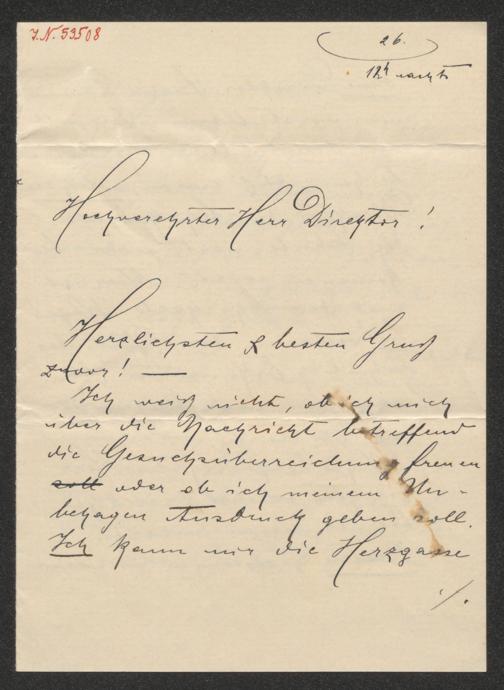 J.N. 53508
26.
12h nachts
Hochverehrter Herr Direktor!
Herzlichsten & besten Gruß
zuvor! —
Ich weiß nicht, ob ich mich
über die Nachricht betreffend
die Gesuchsüberreichung freuen
soll oder ob ich meinem Un-
behagen Ausdruck geben soll.
Ich kann mir die Herzgasse
./.